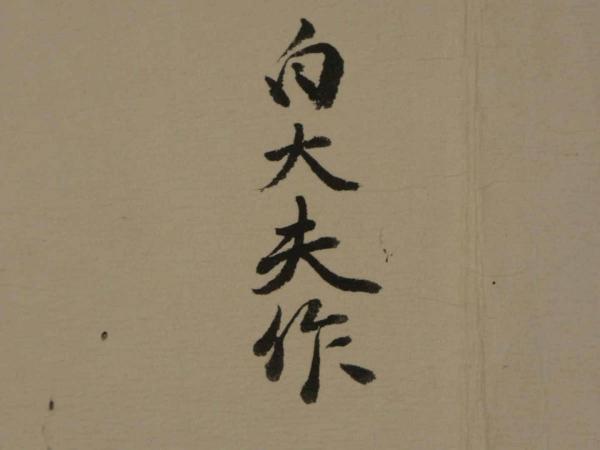 白大夫作